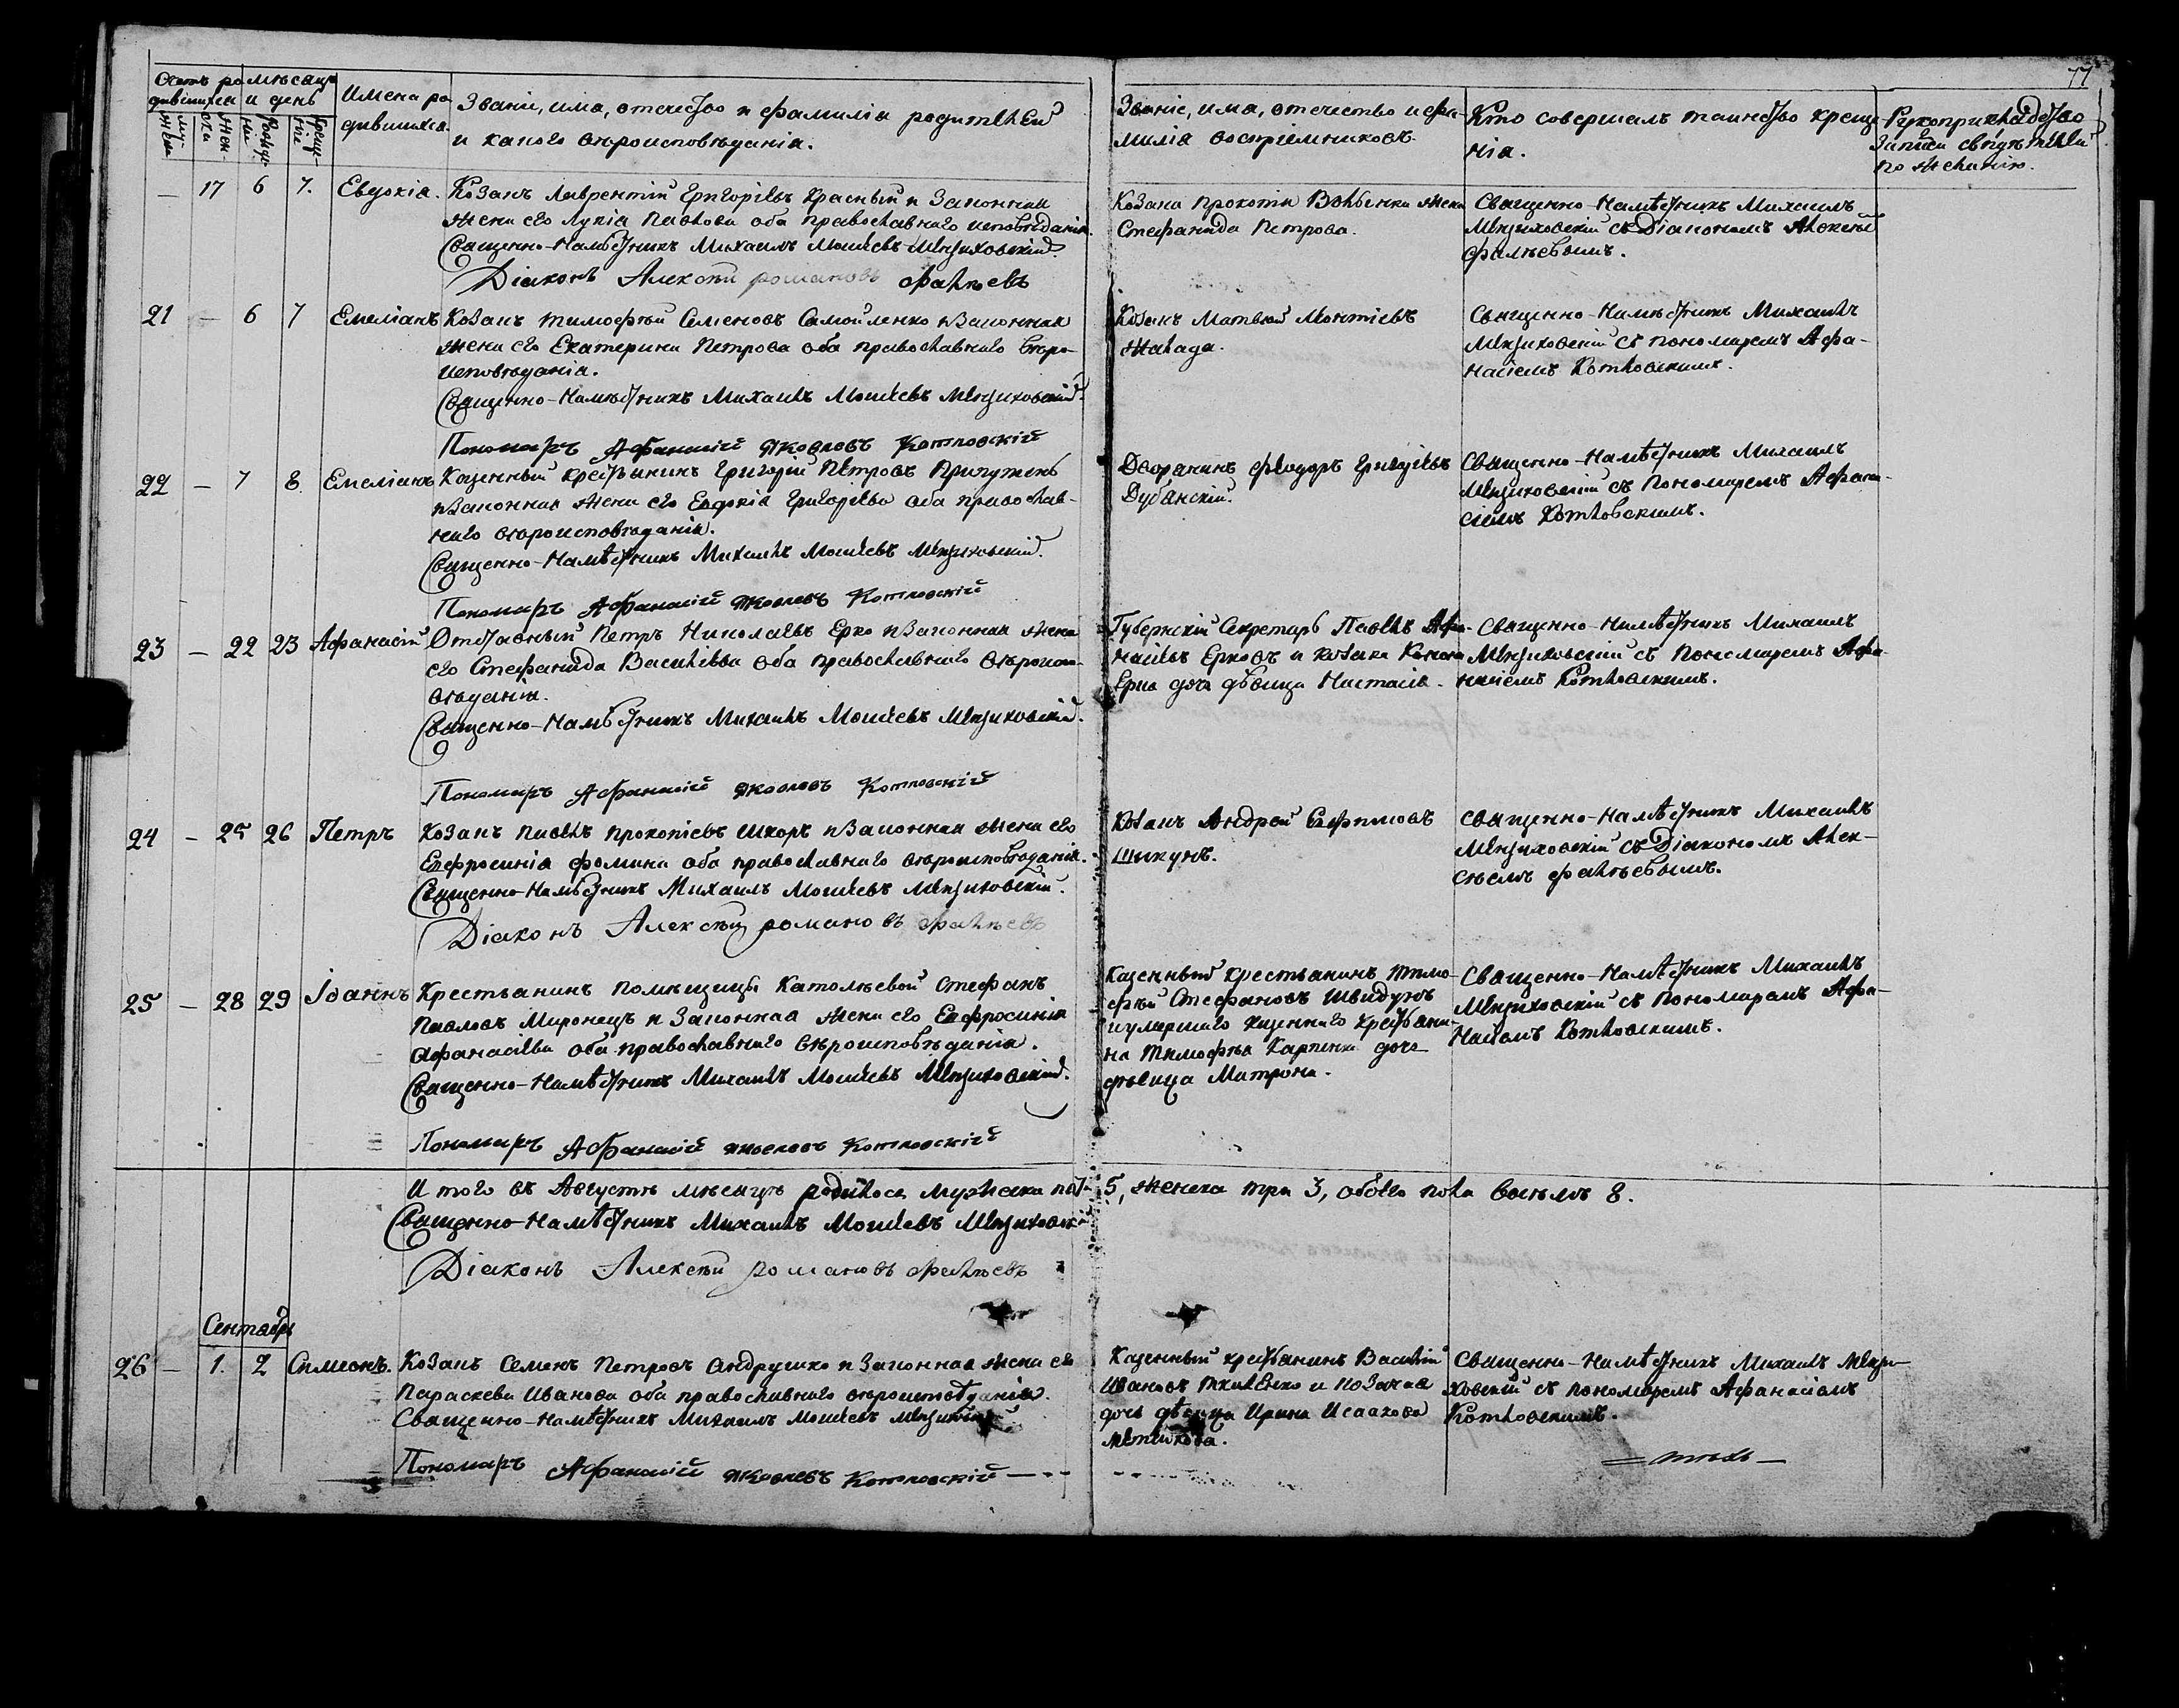 77
Счетъ ро- мѣсяцъ
дившихся и день
муже-
ска
жен-
ска
Рожде-
нія
Креще-
нія
Имена ро
дившихся.
Званіе, има, отечество и фамилія родителей
и какого вѣроисповѣданія.
Званіе, има, отечество и фа-
милія воспріемниковъ.
Кто совершалъ таинство креще-
нія.
Рукоприкладство
записи свидѣтелей
по желанію.
— 17 6 7. Евдокіа.
Козакъ Лаврентій Григоріевъ Красный и Законная
жена его Лукіа Павлова оба православнаго исповѣданія.
Священно-Намѣстникъ Михаилъ Моисеевъ
Діаконъ Алексѣй романовъ Фалѣевъ
Козака Прокопія жена
Стефанида Петрова.
Священно-Намѣстникъ Михаилъ
съ Діакономъ Алексѣе
Фалѣевымъ.
21 — 6 7 Емеліанъ
Козакъ Тимофѣй Семеновъ Самойленко и Законная
жена его Екатерина Петрова оба православнаго вѣро-
исповѣданія.
Священно-Намѣстникъ Михаилъ Моисеевъ
Пономарь Афанасій Яковлевъ Котловскій
Козакъ Матвѣй Леонтіевъ
Жалада.
Священно-Намѣстникъ Михаилъ
съ пономаремъ Афа-
насіемъ Котловскимъ.
22 — 7 8. Емеліанъ
Казенный крестьянинъ Григорій Петровъ
и Законная жена его Евдокіа Григорьева оба православ-
наго вѣроисповѣданія.
Священно-Намѣстникъ Михаилъ Моисеевъ
Пономарь Афанасій Яковлевъ Котловскій
Дворянинъ Феодоръ Григоріевъ
Дубянскій.
Священно-Намѣстникъ Михаилъ
съ Пономаремъ Афана-
сіемъ Котловскимъ.
23 — 22 23 Афанасій
Отставный Петръ Николаевъ Ерко и Законная жена
его Стефанида Василіева оба православнаго вѣроиспо-
вѣданія.
Священно-Намѣстникъ Михаилъ Моисеевъ
Пономарь Афанасій Яковлевъ Котловскій
Губернскій Секретарь Павелъ Афа-
насіевъ Ерковъ и козака
Ерка дочь дѣвица Настасія.
Священно-Намѣстникъ Михаилъ
съ Пономаремъ Афа-
насіемъ Котловскимъ.
24 — 25 26 Петръ
Козакъ Павелъ Прокопіевъ Шкоръ и Законная жена его
Евфросиніа Фомина оба православнаго вѣроисповѣданія.
Священно-Намѣстникъ Михаилъ Моисеевъ
Діаконъ Алексѣй романовъ Фалѣевъ
Козакъ Андрей Евфимовъ
Шикунъ.
Священно-Намѣстникъ Михаилъ
съ Діакономъ Алек-
сѣемъ Фалѣевымъ.
25 — 28 29 Іоаннъ
Крестьянинъ помѣщицы Католѣевой Стефанъ
Павловъ Миронецъ и Законная жена его Евфросиніа
Афанасіева оба православнаго вѣроисповѣданія.
Священно-Намѣстникъ Михаилъ Моисеевъ
Пономарь Афанасій Яковлевъ Котловскій
Казенный крестьянинъ Тимо-
фѣй Стефановъ Швидунъ
и умершаго казеннаго крестьяни-
на Тимофѣа Карпенка дочь
дѣвица Матрона.
Священно-Намѣстникъ Михаилъ
съ Пономаремъ Афа-
насіемъ Котловскимъ.
И того въ Августѣ мѣсяцѣ родилось мужеска пять 5, женска три 3, обоего пола восемь 8.
Священно-Намѣстникъ Михаилъ Моисеевъ
Діаконъ Алексѣй романовъ Фалѣевъ
Сентябрь
26 — 1. 2 Симеонъ.
Козакъ Семенъ Петровъ Андрушко и Законная жена его
Параскева Иванова оба православнаго вѣроисповѣданія.
Священно-Намѣстникъ Михаилъ Моисеевъ
Пономарь Афанасій Яковлевъ Котловскій
Казенный крестьянинъ Василій
Ивановъ Ткаченко и козачья
дочь дѣвица Ирина Исаакова
Священно-Намѣстникъ Михаилъ
съ пономаремъ Афанасіемъ
Котловскимъ.